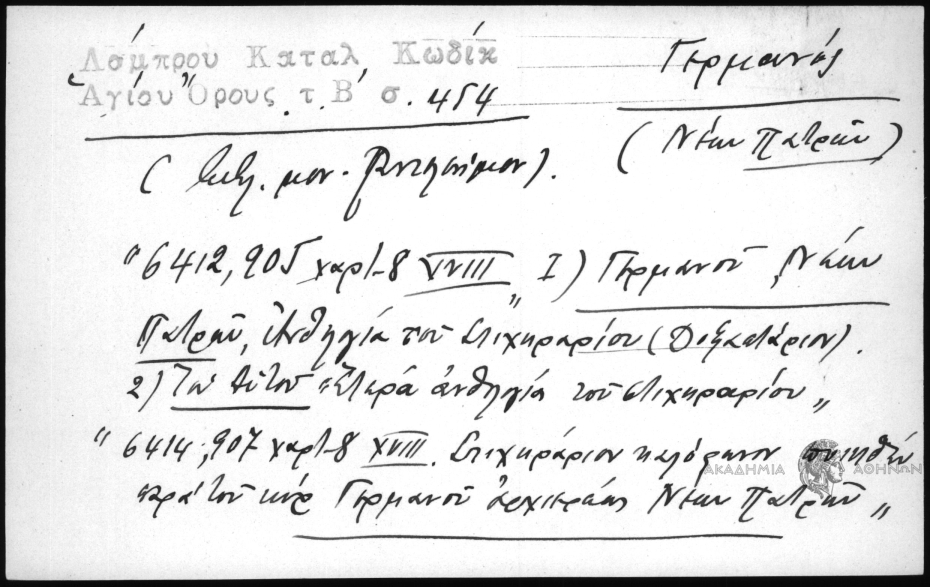 Λάμπρου Καταλ Κωδίκ
Ἁγίου Ὄρους τ. Β' σ. 454
Γερμανὸς
(Νέων Πατρῶν)
(Βιβλ. μον. Παντελεήμον).
"6412,905 χαρτ-8 XVIII" 1) Γερμανοῦ Νέων
Πατρῶν, Ἀνθολογία τοῦ Στιχηραρίου (Δοξαστάριον).
2) Τοῦ Αὐτοῦ Ἑτέρα ἀνθολογία τοῦ στιχηραρίου"
"6414,907 χαρτ-8 XVIII. Στιχηράριον καλόφωνον ποιηθὲν
παρὰ τοῦ κὺρ Γερμανοῦ ἀρχιερέως Νέων Πατρῶν"
ΑΚΑΔΗΜΙΑ ΑΘΗΝΩΝ